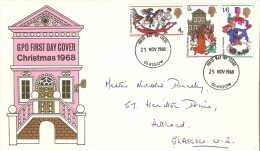 GPO FIRST DAY COVER
Christmas 1968
4d
9d
1/6
FIRST DAY OF ISSUE
25 NOV 1968
GLASGOW
FIRST DAY OF ISSUE
25 NOV 1968
GLASGOW
Master Nicholas
51, Hamilton Drive,
Hillhead,
GLASGOW W.2.